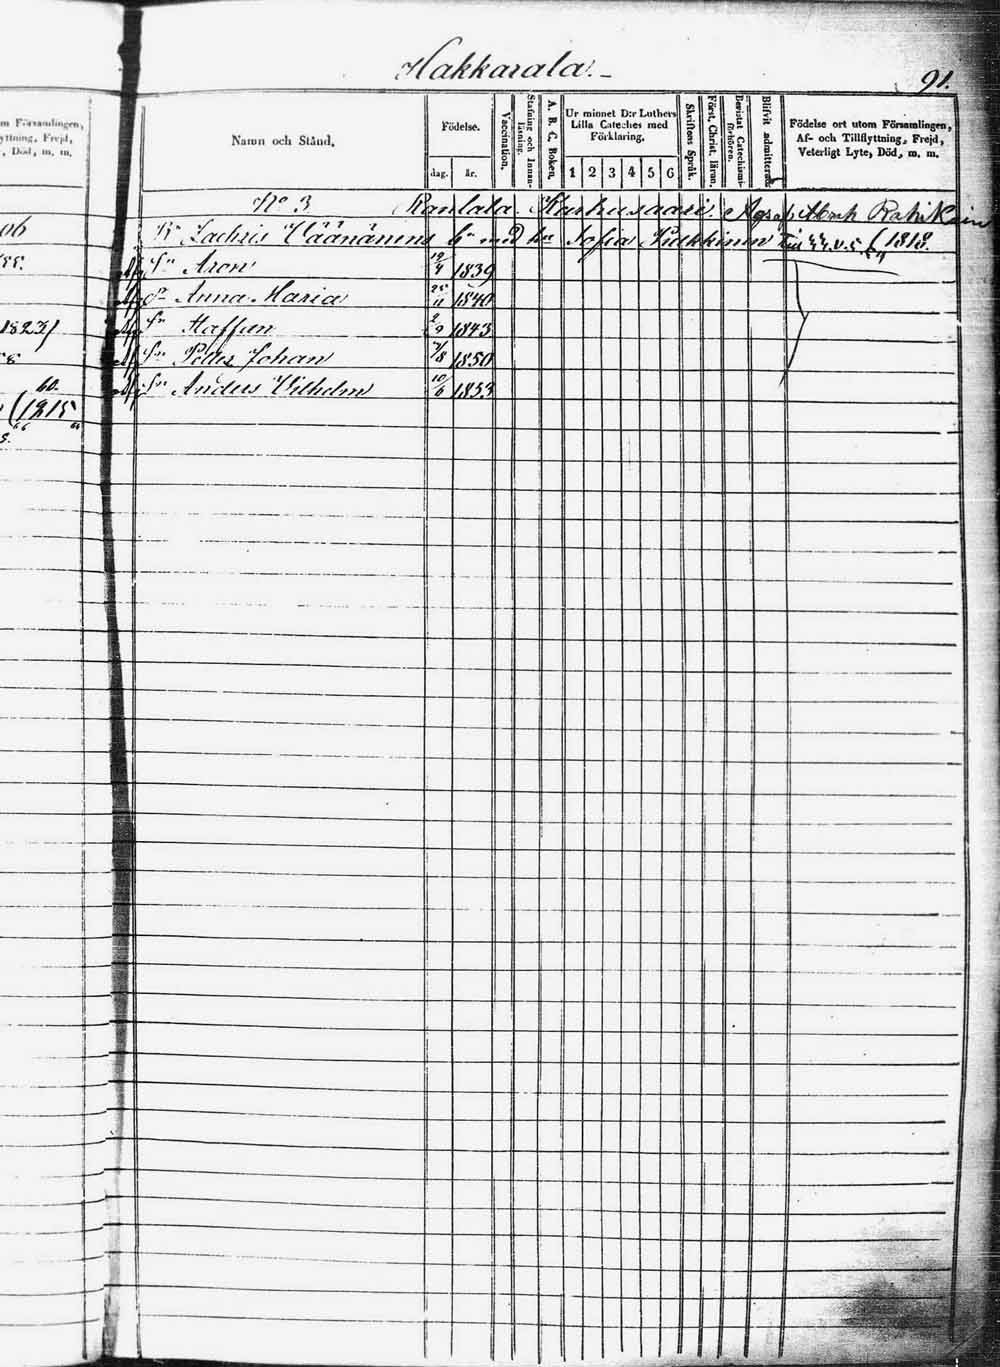 Hakkarala.
91.
m Församlingen,
yttning, Frejd,
, Död, m. m.
Namn och Stånd.
Födelse.
dag. år.
Vaccination.
Stafning och Innan-läsning.
A. B. C. Boken.
Ur minnet D:r Luthers Lilla Cateches med Förklaring.
1 2 3 4 5 6
Skriftens Språk.
Först. Christ. läran.
Bevistat Catechismi-förhören.
Blifvit admitterad
Födelse ort utom Församlingen,
Af- och Tillflyttning, Frejd,
Veterligt Lyte, Död, m. m.
No 3 Rantala Karhusaari.
Zachris Väänänens med Sofia (1818.
Sn Aron 12/4 1839
Dr Anna Maria 25/11 1840
Sn Staffan 2/9 1843
Sn Petter Johan 7/8 1850
Sn Anders Vilhelm 10/6 1853
06
1823/
60.
(1215